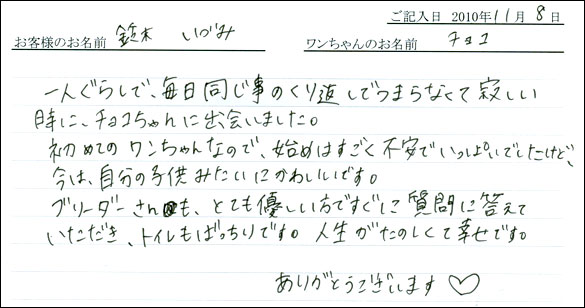 ご記入日 2010年11月8日
お客様のお名前 鈴木 いづみ ワンちゃんのお名前 チョコ
一人ぐらしで、毎日同じ事のくり返しでつまらなくて寂しい
時に、チョコちゃんに出会いました。
初めてのワンちゃんなので、始めはすごく不安でいっぱいでしたけど、
今は、自分の子供みたいにかわいいです。
ブリーダーさんも、とても優しい方ですぐに質問に答えて
いただき、トイレもばっちりです。人生がたのしくて幸せです。
ありがとうございます♡